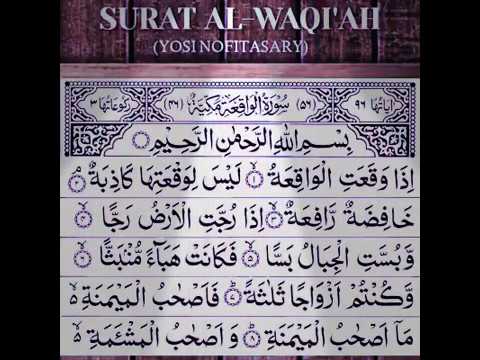 SURAT AL-WAQI'AH
(YOSI NOFITASARY)
اٰیَاتُهَا ٩٦ (٥٦) سُوْرَةُ الْوَاقِعَةِ مَكِّیَّةٌ (٤٦) رُكُوْعَاتُهَا ٣
بِسْمِ اللّٰهِ الرَّحْمٰنِ الرَّحِیْمِ
اِذَا وَقَعَتِ الْوَاقِعَةُ ۙ١ لَیْسَ لِوَقْعَتِهَا كَاذِبَةٌ ۘ٢
خَافِضَةٌ رَّافِعَةٌ ۙ٣ اِذَا رُجَّتِ الْاَرْضُ رَجًّا ۙ٤
وَّبُسَّتِ الْجِبَالُ بَسًّا ۙ٥ فَكَانَتْ هَبَآءً مُّنْۢبَثًّا ۙ٦
وَّكُنْتُمْ اَزْوَاجًا ثَلٰثَةً ؕ٧ فَاَصْحٰبُ الْمَیْمَنَةِ ۵
مَاۤ اَصْحٰبُ الْمَیْمَنَةِ ؕ٨ وَ اَصْحٰبُ الْمَشْـَٔمَةِ ۵